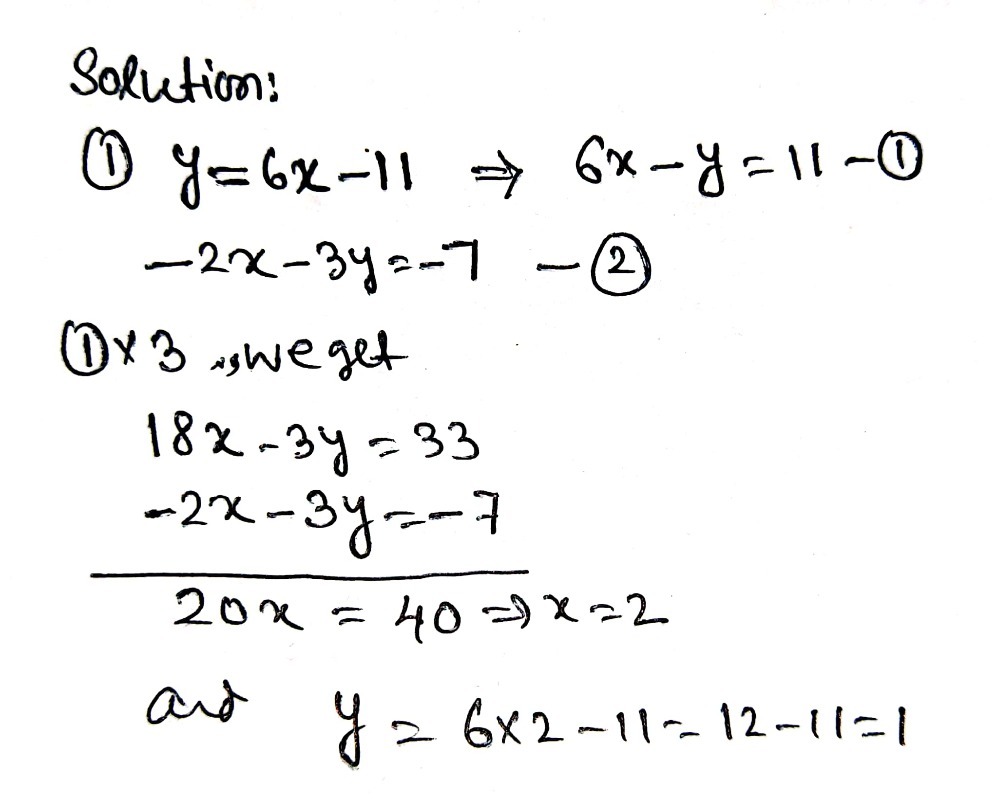 Solution:
① y=6x-11 ⇒ 6x-y=11 -①
-2x-3y=-7 -②
①×3 ,, we get
18x-3y=33
-2x-3y=-7
20x = 40 ⇒ x=2
and y = 6×2-11= 12-11=1